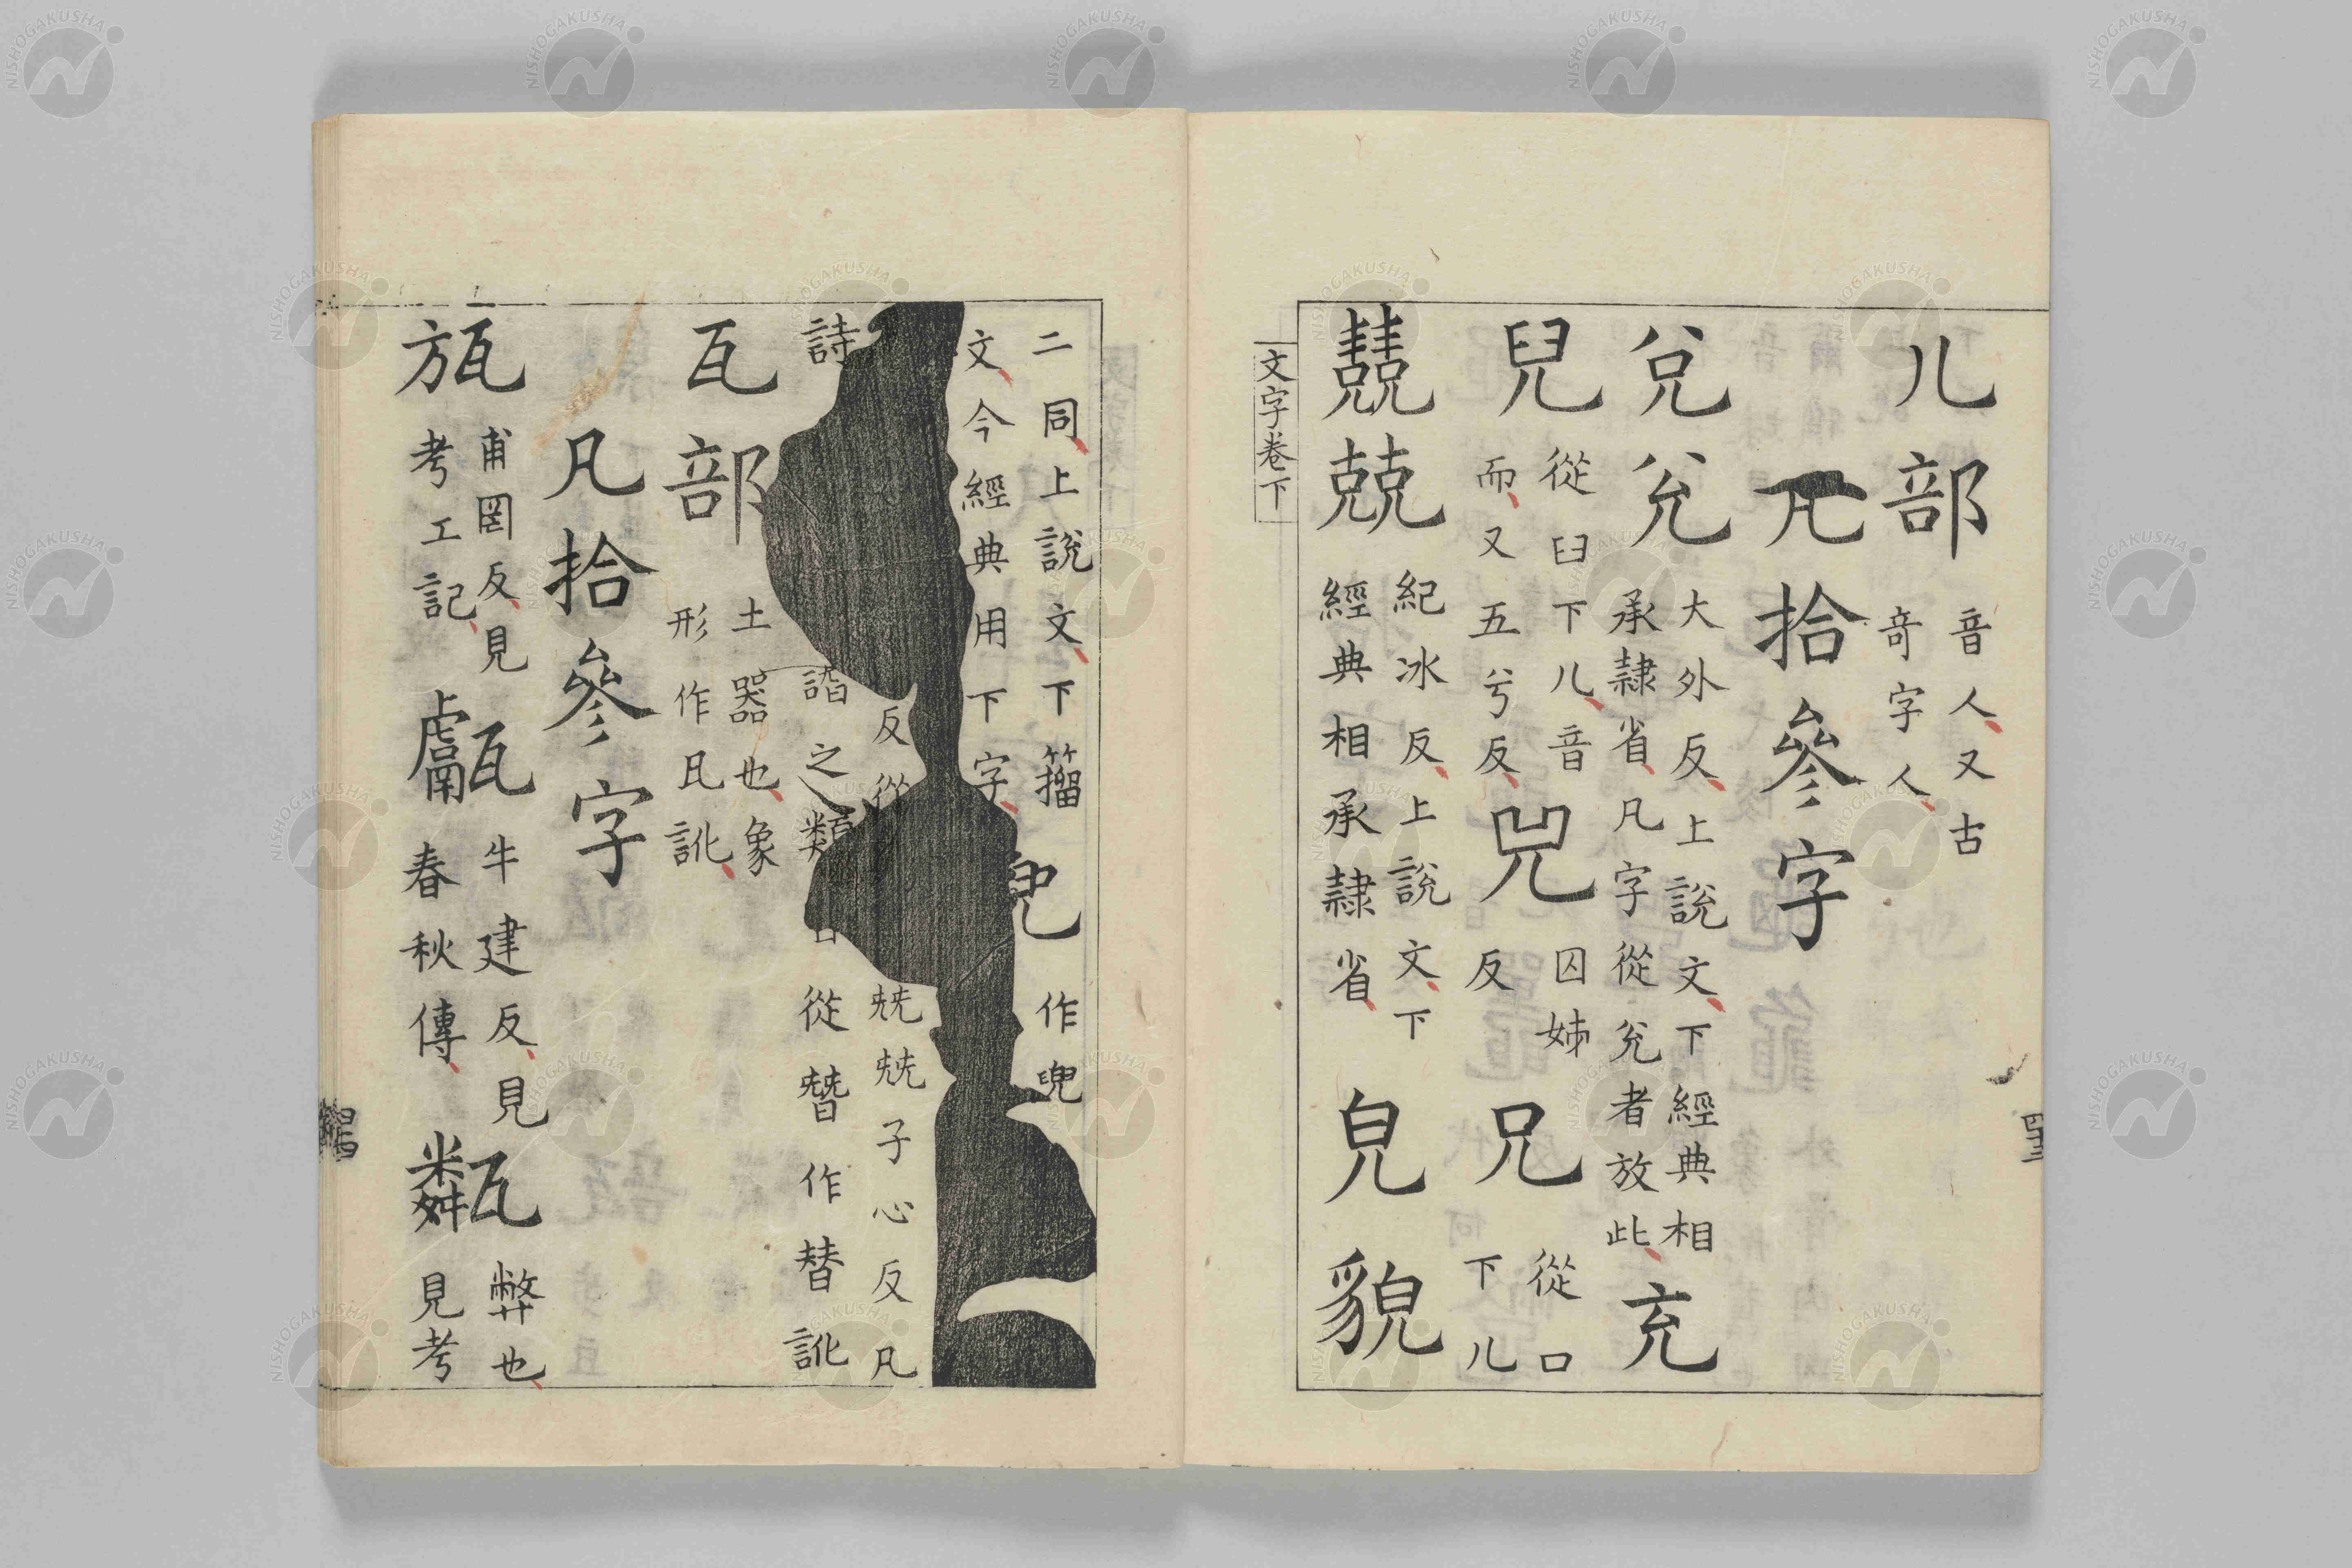 儿部 音人又古奇字人
凡拾參字
兌兊 大外反上說文下經典相承隷省凡字從兊者放此 充
兒 從臼下儿音而又五兮反 兕 囚姊反 兄 從口下儿
兢 兢 紀冰反上說文下經典相承隷省 皃 貌
文字卷下
四十三
二同上說文下籀文今經典用下字 作兜
反從 兓兓子心反凡
詩 譖之類 從朁作替訛
瓦部 土器也象形作凡訛
凡拾參字
瓬 甫罔反見考工記 甗 牛建反見春秋傳 甐 弊也見考
NISHOGAKUSHA